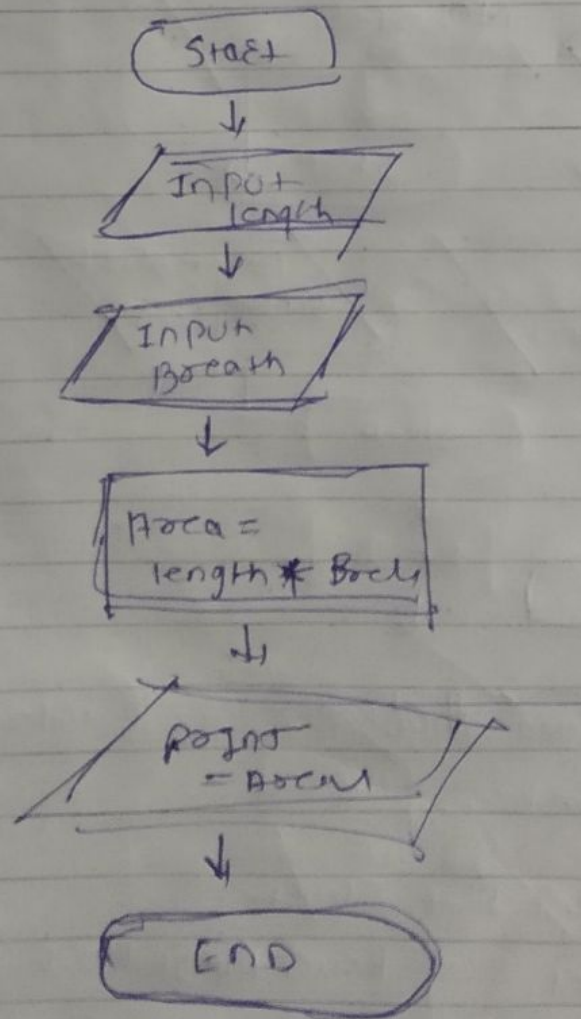 Start
Input
length
Input
Breath
Area =
length *
print
= Area
END